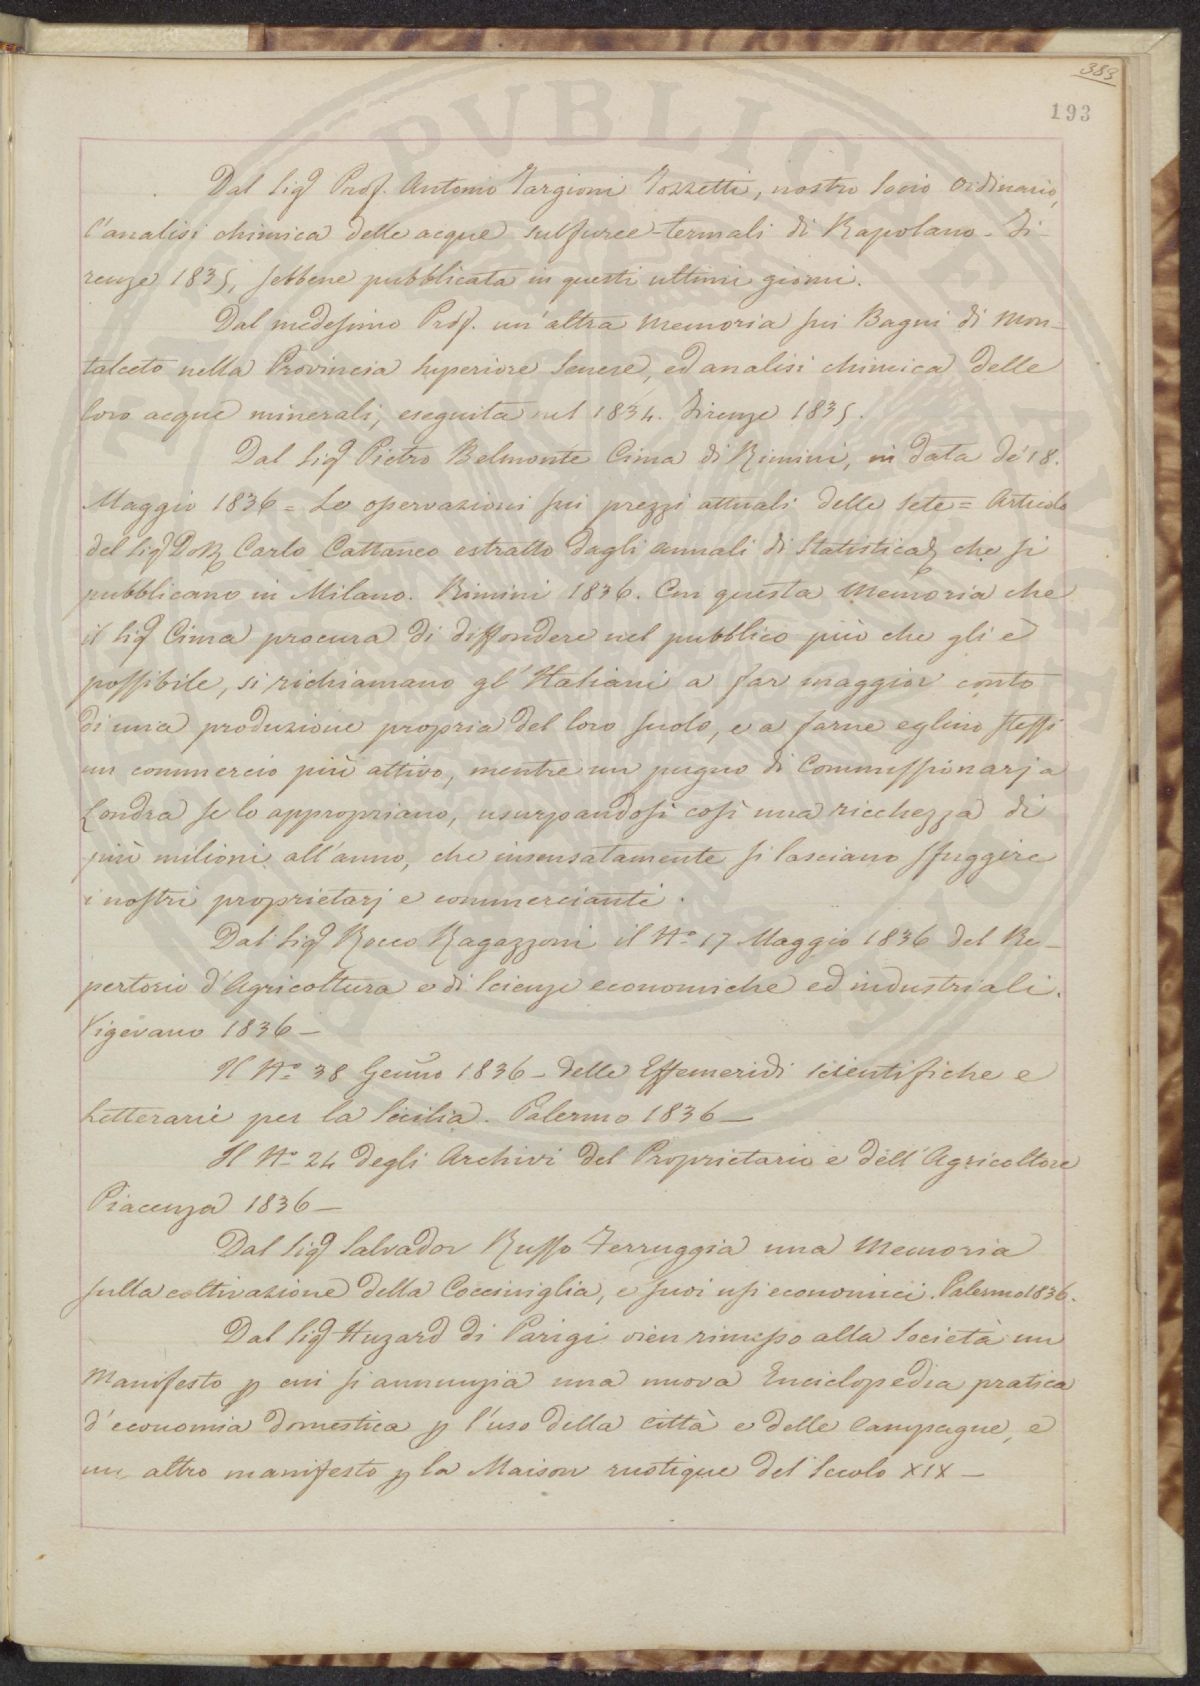 383
193
Dal Sig.r Prof. Antonio Targioni Tozzetti, nostro Socio Ordinario,
l'analisi chimica delle acque sulfuree-termali di Rapolano. Fi-
renze 1835, sebbene pubblicata in questi ultimi giorni.
Dal medesimo Prof. un'altra Memoria sui Bagni di Mon-
talceto nella Provincia Superiore Senese, ed analisi chimica delle
loro acque minerali, eseguita nel 1834. Firenze 1835.
Dal Sig.r Pietro Belmonte Cima di Rimini, in data de' 18.
Maggio 1836 = Le osservazioni sui prezzi attuali delle sete = Articolo
del Sig.r Dott. Carlo Cattaneo estratto dagli annali di Statistica, che si
pubblicano in Milano. Rimini 1836. Con questa Memoria che
il Sig.r Cima procura di diffondere nel pubblico più che gli è
possibile, si richiamano gl'Italiani a far maggior conto
di una produzione propria del loro suolo, e a farne eglino stessi
un commercio più attivo, mentre un pugno di Commissionarj a
Londra se lo appropriano, usurpandosi così una ricchezza di
più milioni all'anno, che insensatamente si lasciano sfuggire
i nostri proprietarj e commercianti.
Dal Sig.r Rocco Ragazzoni il N.o 17 Maggio 1836 del Re-
pertorio d'Agricoltura e di Scienze economiche ed industriali.
Vigevano 1836 —
Il N.o 38 Genn.o 1836 - delle Effemeridi scientifiche e
Letterarie per la Sicilia. Palermo 1836 —
Il N.o 24 degli Archivi del Proprietario e dell'Agricoltore
Piacenza 1836 —
Dal Sig.r Salvador Russo Ferruggia una Memoria
sulla coltivazione della Cocciniglia, e suoi usi economici. Palermo 1836.
Dal Sig.r Huzard di Parigi vien rimesso alla Società un
Manifesto p cui si annunzia una nuova Enciclopedia pratica
d'economia domestica p l'uso della città e delle Campagne, e
un altro manifesto p la Maison rustique del Secolo XIX —